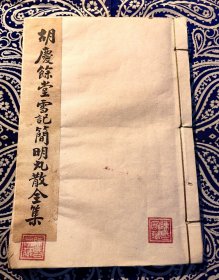 胡慶餘堂雪記簡明丸散全集